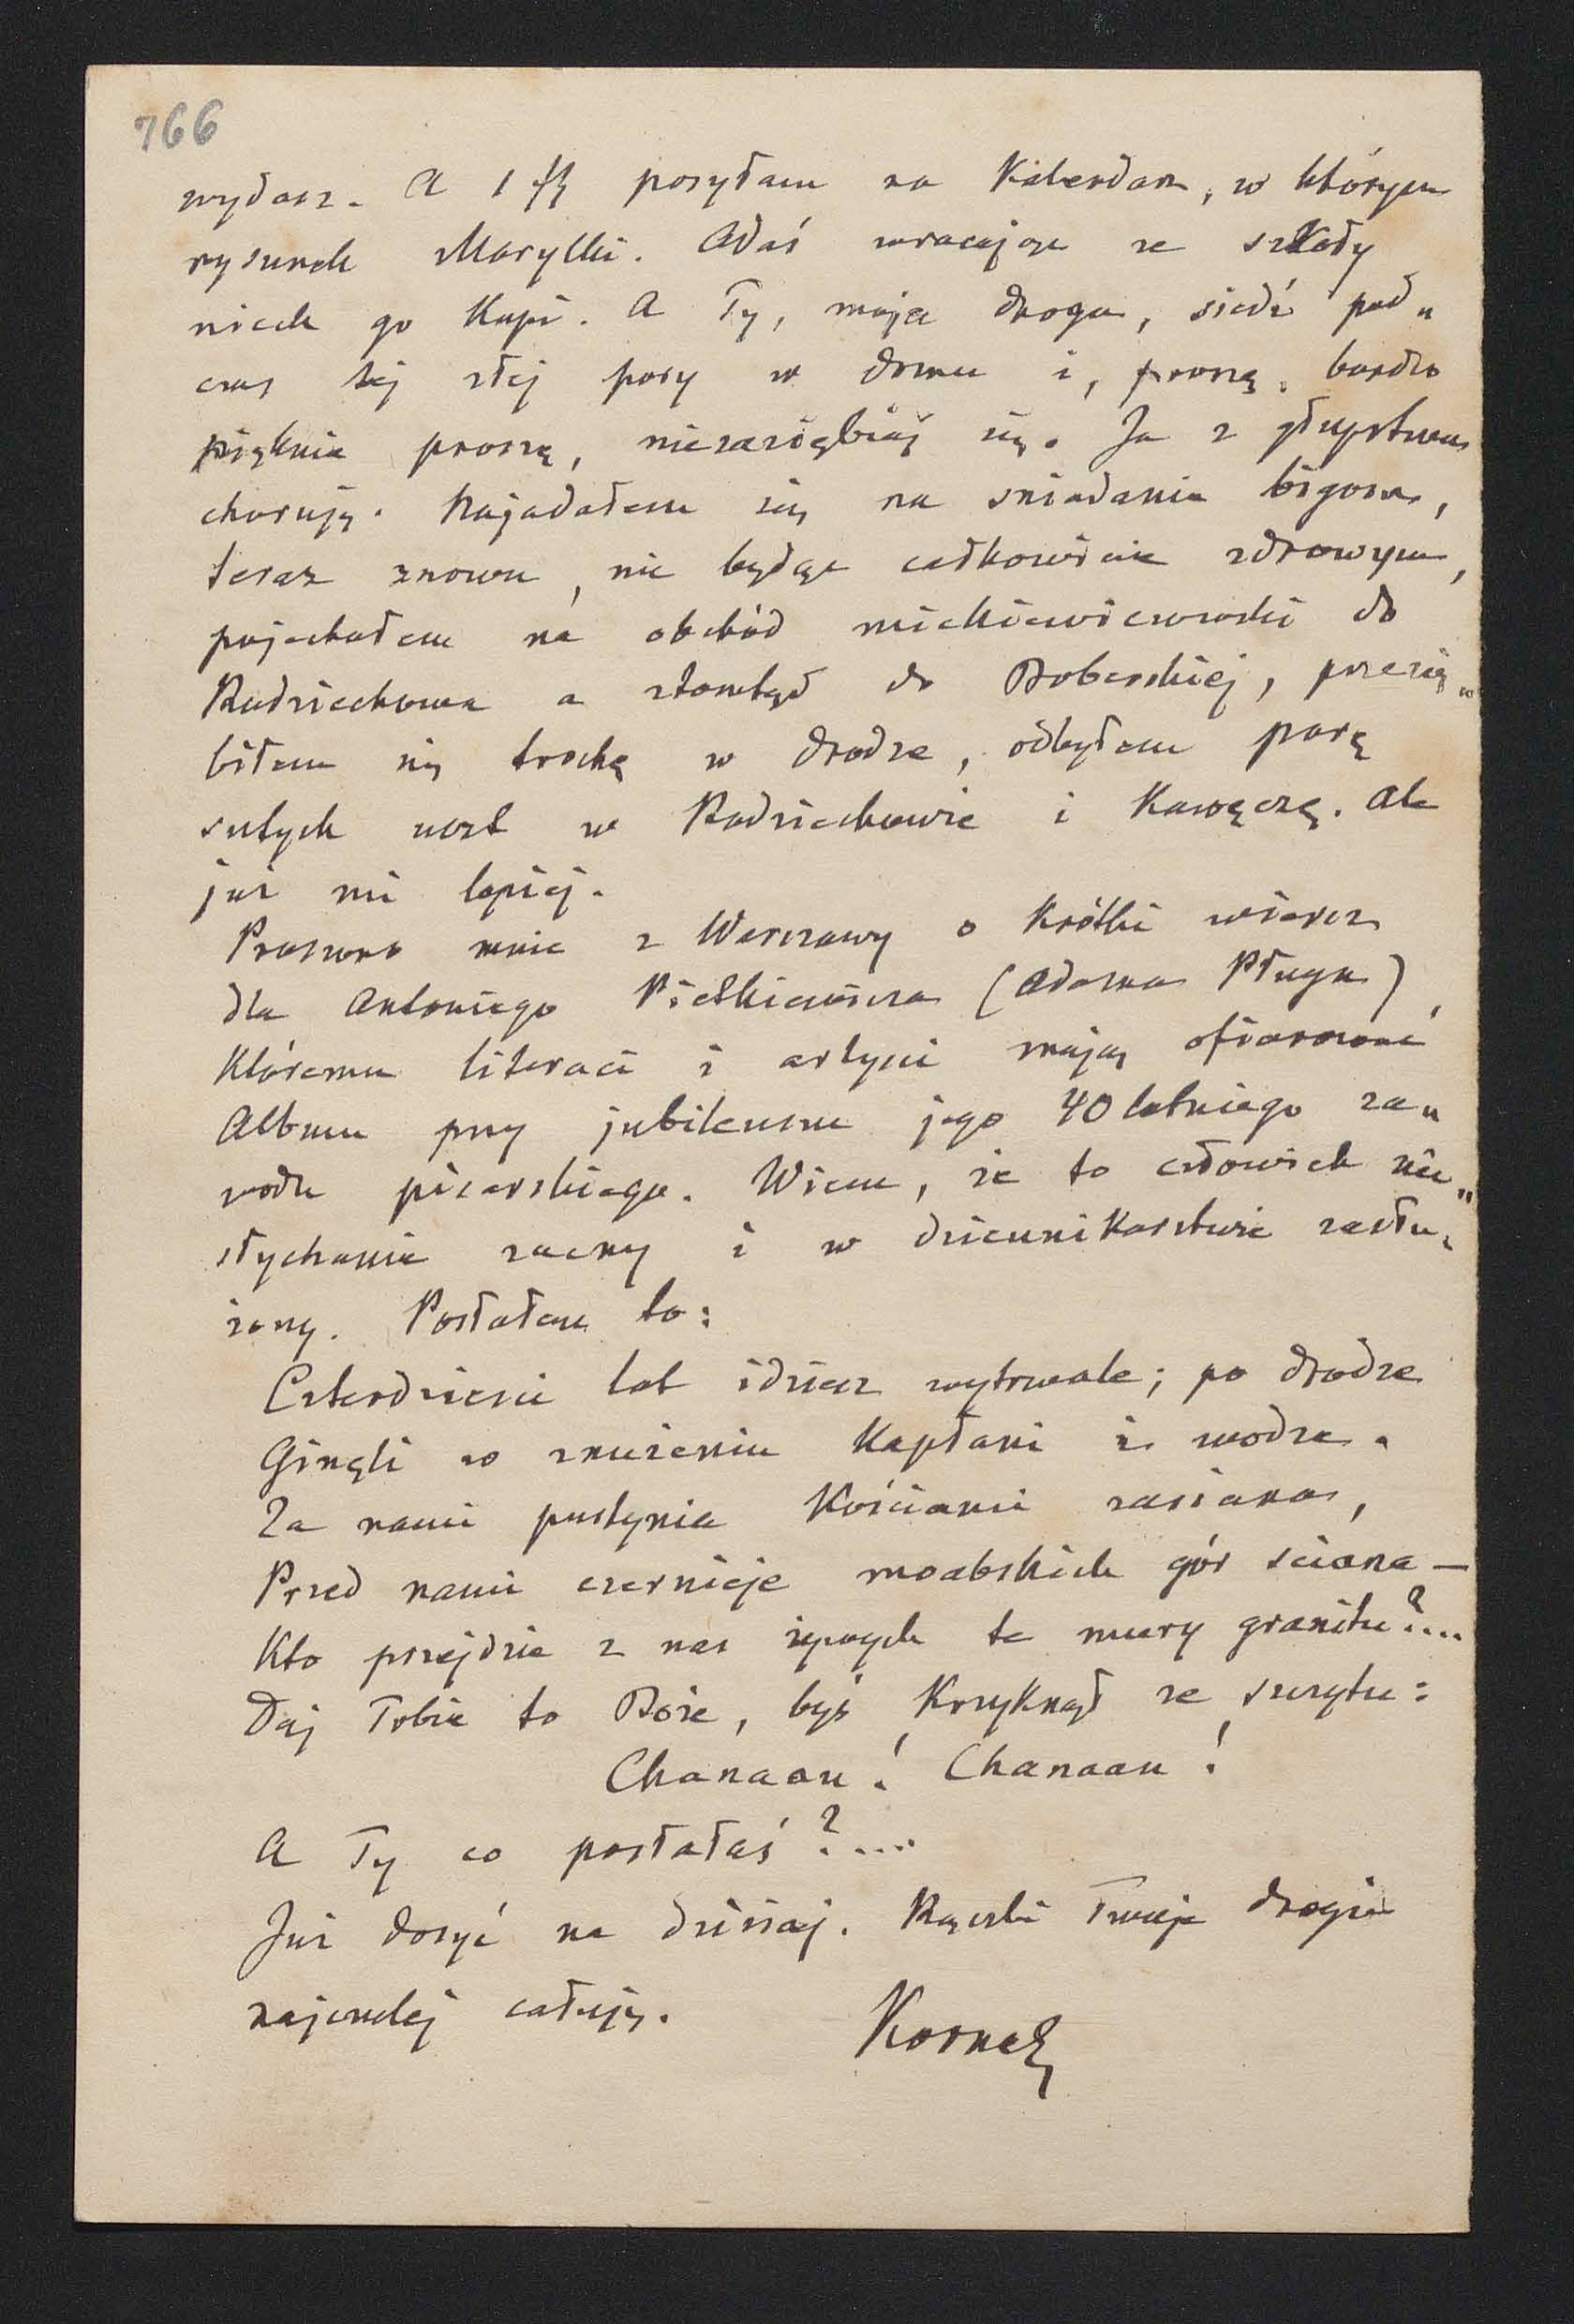 766
wydasz. A 1 fl posyłam na Kalendarz, w którym
rysunek Marylki. Adaś wracając ze szkoły
niech go kupi. A Ty, moja droga, siedź pod„
czas tej złej pory w domu i, proszę, bardzo
pięknie proszę, niezaziębiaj się. Ja z głupstwa
choruję. Najadałem się na śniadania bigosu,
teraz znowu, nie będąc całkowicie zdrowym,
pojechałem na obchód mickiewiczowski do
Radziechowa a ztamtąd do Boberskiej, przezię„
biłem się trochę w drodze, odbyłem parę
sutych uczt w Radziechowie i Kawęczę. Ale
już mi lepiej.
Proszono mnie z Warszawy o krótki wiersz
dla Antoniego Pietkiewicza (Adama Pługa),
któremu literaci i artyści mają ofiarować
Album przy jubileuszu jego 40 letniego za„
wodu pisarskiego. Wiem, że to człowiek nie„
słychanie zacny i w dziennikarstwie zasłu„
żony. Posłałem to:
Czterdzieści lat idziesz wytrwale; po drodze
Ginęli w znużeniu kapłani i wodze.
Za nami pustynia kościami zasiana,
Przed nami czernieje moabskich gór ściana —
Kto przejdzie z nas żywych te mury granitu?....
Daj Tobie to Boże, byś krzyknął ze szczytu:
Chanaan! Chanaan!
A Ty co posłałaś?....
Już dosyć na dzisiaj. Rączki Twoje drogie
najczulej całuję.
Kornel